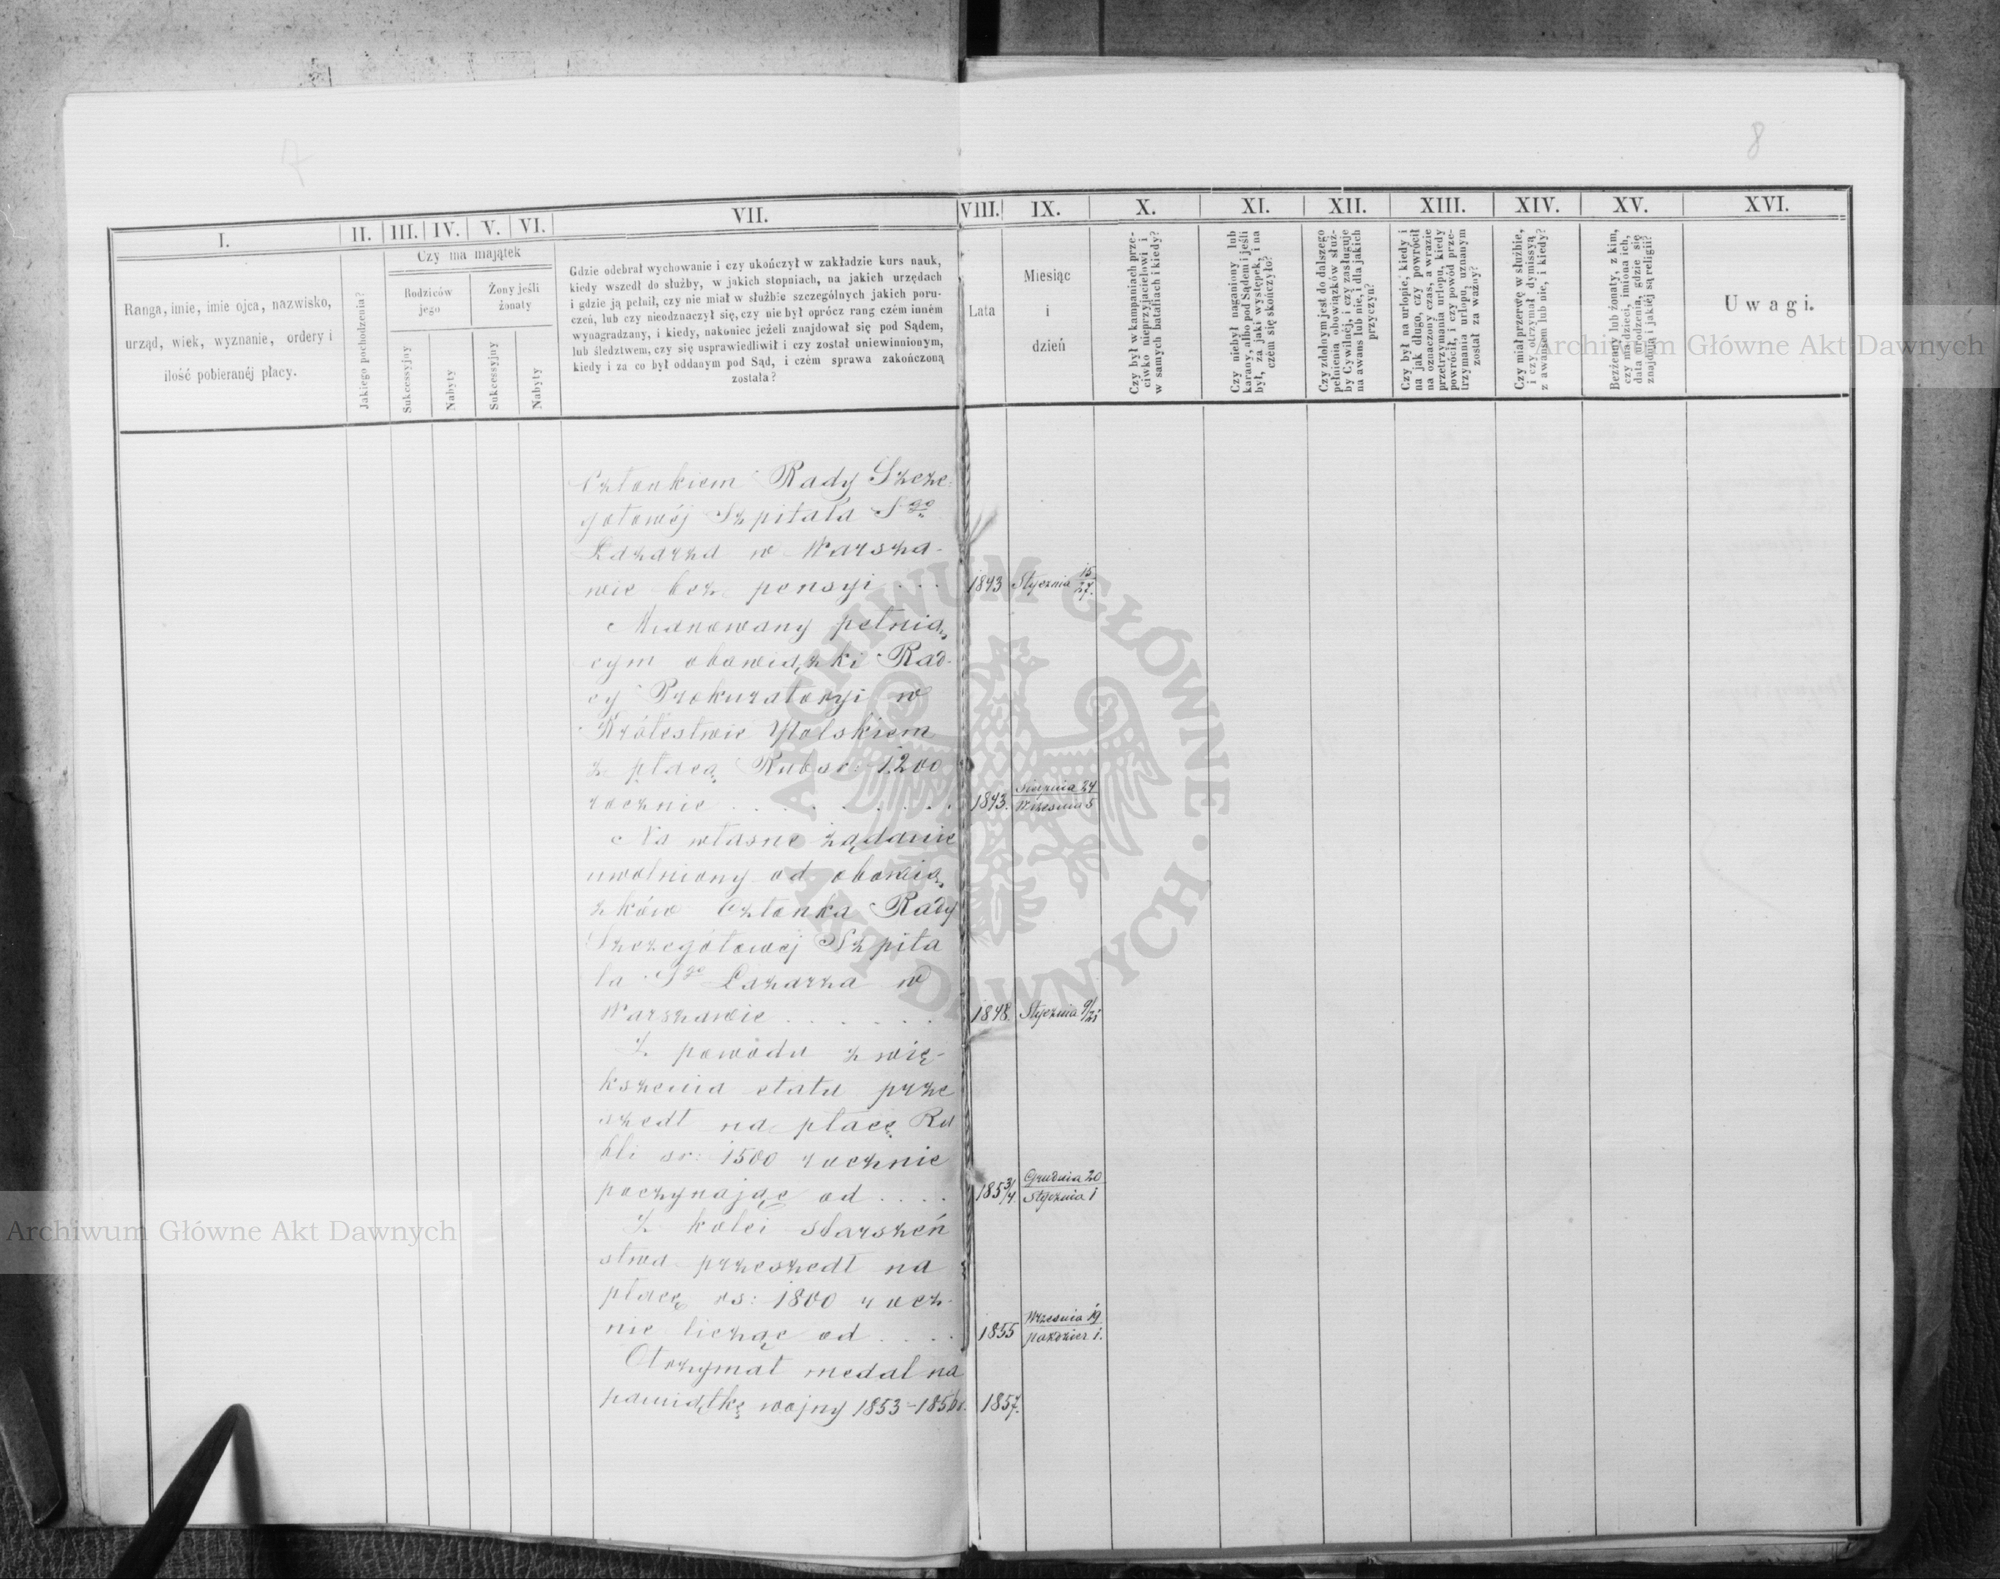 7
8
I.
II.
III.
IV.
V.
VI.
VII.
VIII.
IX.
X.
XI.
XII.
XIII.
XIV.
XV.
XVI.
Ranga, imie, imie ojca, nazwisko,
urząd, wiek, wyznanie, ordery i
ilość pobieranéj płacy.
Jakiego pochodzenia?
Czy ma majątek
Rodziców
jego
Żony jeśli
żonaty
Sukcessyjny
Nabyty
Sukcessyjny
Nabyty
Gdzie odebrał wychowanie i czy ukończył w zakładzie kurs nauk,
kiedy wszedł do służby, w jakich stopniach, na jakich urzędach
i gdzie ją pełnił, czy nie miał w służbie szczególnych jakich poru-
czeń, lub czy nieodznaczył się, czy nie był oprócz rang czém inném
wynagradzany, i kiedy, nakoniec jeżeli znajdował się pod Sądem,
lub śledztwem, czy się usprawiedliwił i czy został uniewinnionym,
kiedy i za co był oddanym pod Sąd, i czém sprawa zakończoną
została?
Lata
Miesiąc
i
dzień
Czy był w kampaniach prze-
ciwko nieprzyjacielowi i
w samych bataliach i kiedy?
Czy niebył naganiony lub
karany, albo pod Sądem i jeśli
był, za jaki występek, i na
czém się skończyło?
Czy zdolnym jest do dalszego
pełnienia obowiązków służ-
by Cywilnéj, i czy zasługuje
na awans lub nie, i dla jakich
przyczyn?
Czy był na urlopie, kiedy i
na jak długo, czy powrócił
na oznaczony czas, a w razie
przetrzymania urlopu, kiedy
powrócił, i czy powód prze-
trzymania urlopu, uznanym
został za ważny?
Czy miał przerwę w służbie,
i czy otrzymał dymissyą
z awansem lub nie, i kiedy?
Bezżenny lub żonaty, z kim,
czy ma dzieci, imiona ich,
data urodzenia, gdzie się
znajdują i jakiéj są religii?
Uwagi.
Członkiem Rady Szcze-
gółowéj Szpitala Sgo
Łazarza w Warsza-
wie bez pensyi . . . 1843 Stycznia 15/27.
Mianowany pełnią-
cym obowiązki Rad-
cy Prokuratoryi w
Królestwie Polskiem
z płacą Rubsr: 1200
rocznie . . . . . . 1843. Sierpnia 24/Września 5
Na własne żądanie
uwolniony od obowią-
zków Członka Rady
Szczegółowéj Szpita
la Sgo Łazarza w
Warszawie . . . . . . 1848. Stycznia 9/21
Z powodu zwię-
kszenia etatu prze
szedł na płacę Ru
bli sr: 1500 rocznie
poczynając od . . . . 1853/4 Grudnia 20/Stycznia 1
Z kolei starszeń
stwa przeszedł na
płacę rs: 1800 rocz-
nie licząc od . . . . 1855 Września 19/paździer 1.
Otrzymał medal na
pamiątkę wojny 1853-1856 r. 1857.
ARCHIWUM GŁÓWNE · AKT DAWNYCH ·
Archiwum Główne Akt Dawnych
Archiwum Główne Akt Dawnych